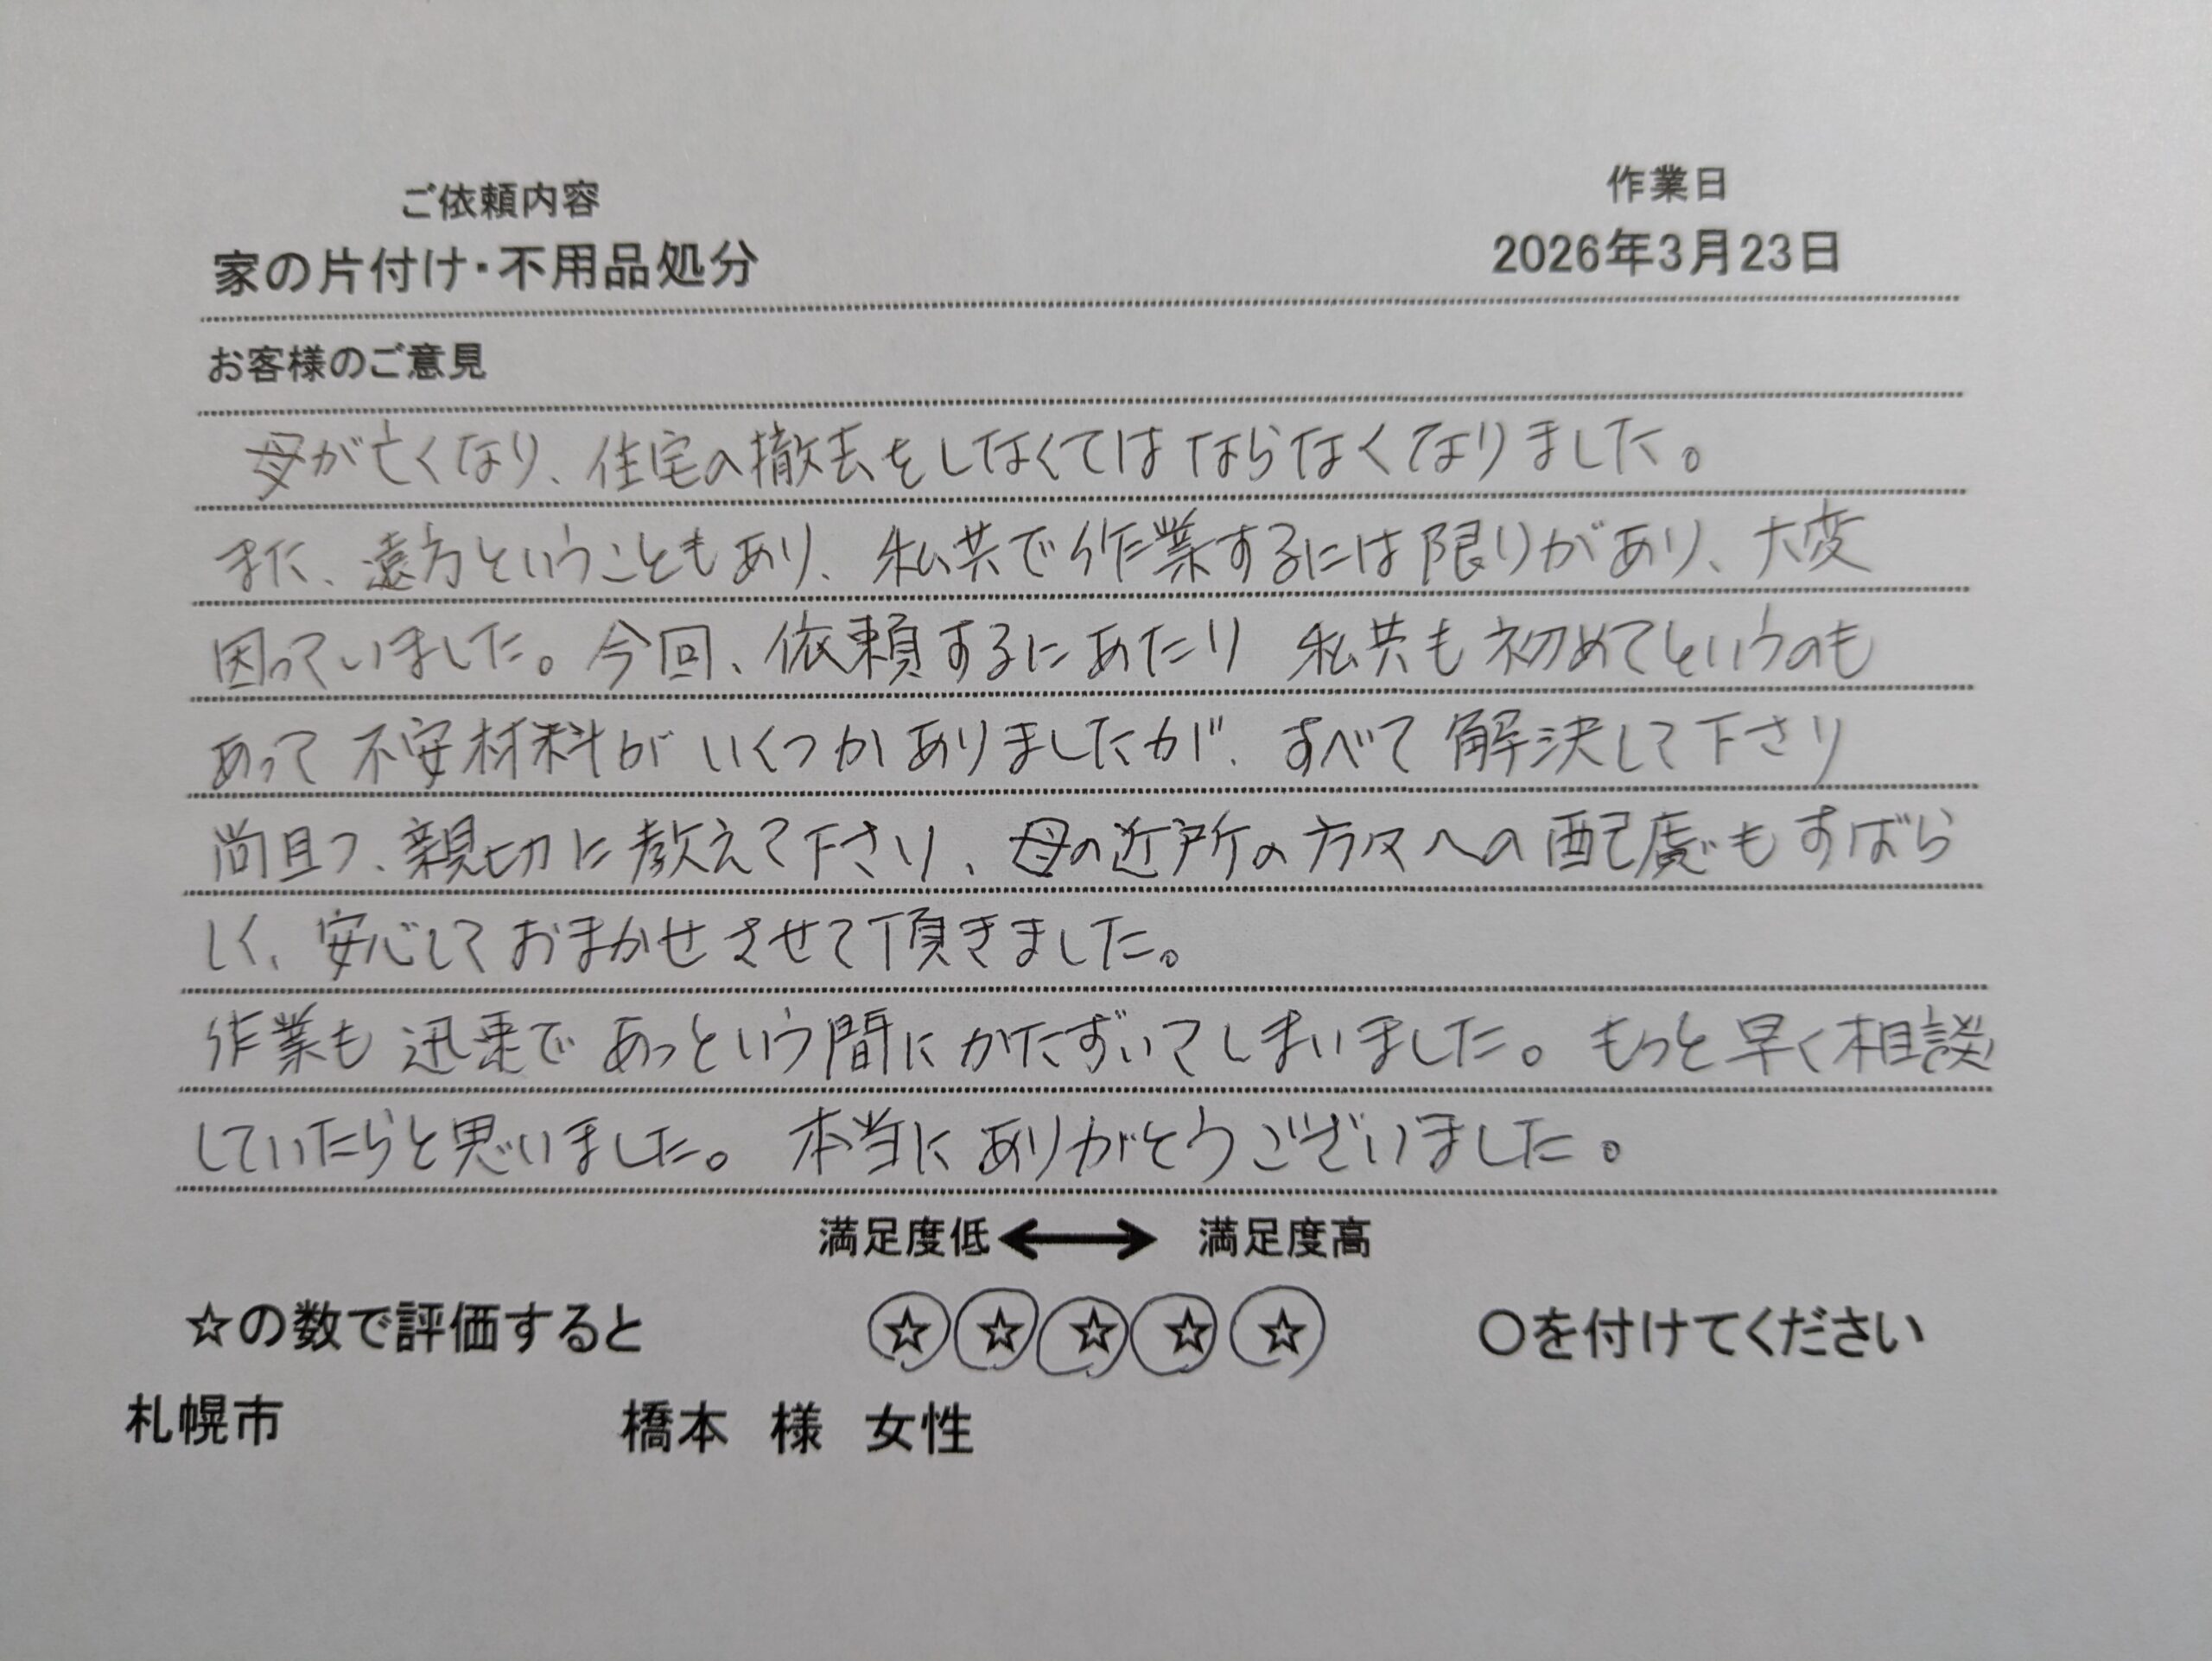 ご依頼内容
作業日
家の片付け・不用品処分
2026年3月23日
お客様のご意見
母が亡くなり、住宅の撤去をしなくてはならなくなりました。
また、遠方ということもあり、私共で作業するには限りがあり、大変
困っていました。今回、依頼するにあたり 私共も初めてというのも
あって不安材料がいくつかありましたが、すべて解決して下さり
尚且つ、親切に教えて下さり、母の近所の方々への配慮もすばら
しく、安心しておまかせさせて頂きました。
作業も迅速で あっという間にかたずいてしまいました。もっと早く相談
していたらと思いました。本当にありがとうございました。
満足度低 ⟷ 満足度高
☆の数で評価すると ☆☆☆☆☆ 〇を付けてください
札幌市 橋本 様 女性